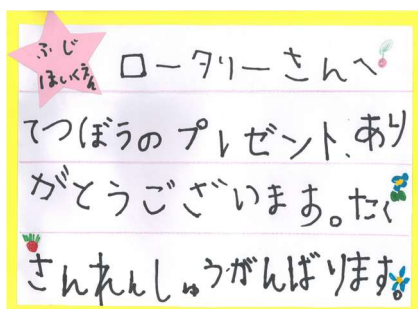 ふじ
ほいくえん
ロータリーさんへ
てつぼうのプレゼント、あり
がとうございます。たく
さんれんしゅうがんばります。